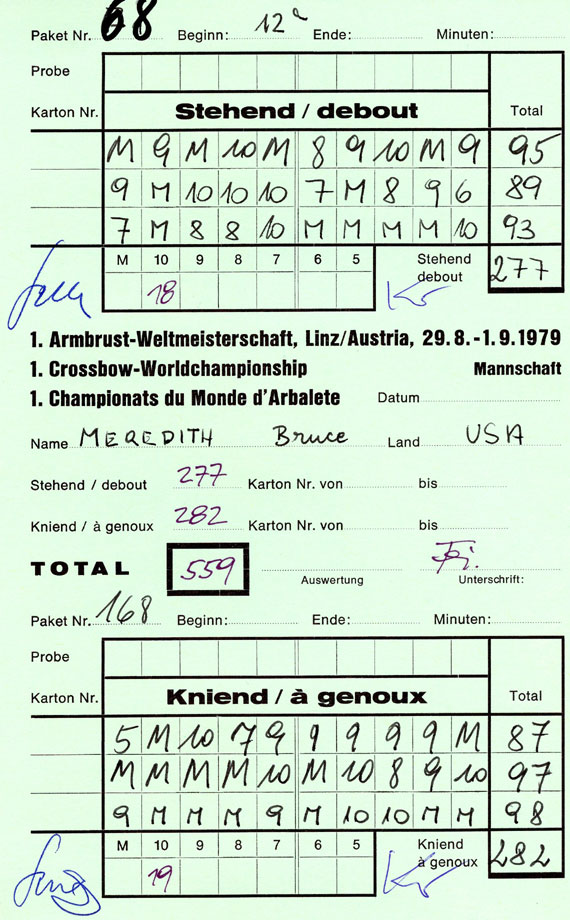 Paket Nr. 68 Beginn: 12 Ende: Minuten:
Probe
Karton Nr. Stehend / debout Total
M 9 M 10 M 8 9 10 M 9 95
9 M 10 10 10 7 M 8 9 6 89
7 M 8 8 10 M M M M 10 93
M 10 9 8 7 6 5 Stehend debout 277
18
1. Armbrust-Weltmeisterschaft, Linz/Austria, 29.8.-1.9.1979
1. Crossbow-Worldchampionship Mannschaft
1. Championats du Monde d'Arbalete Datum
Name MEREDITH Bruce Land USA
Stehend / debout 277 Karton Nr. von bis
Kniend / à genoux 282 Karton Nr. von bis
TOTAL 559
Auswertung Unterschrift:
Paket Nr. 168 Beginn: Ende: Minuten:
Probe
Karton Nr. Kniend / à genoux Total
5 M 10 7 9 9 9 9 9 M 87
M M M M 10 M 10 8 9 10 97
9 M M M 9 M 10 10 M M 98
M 10 9 8 7 6 5 Kniend à genoux 282
19